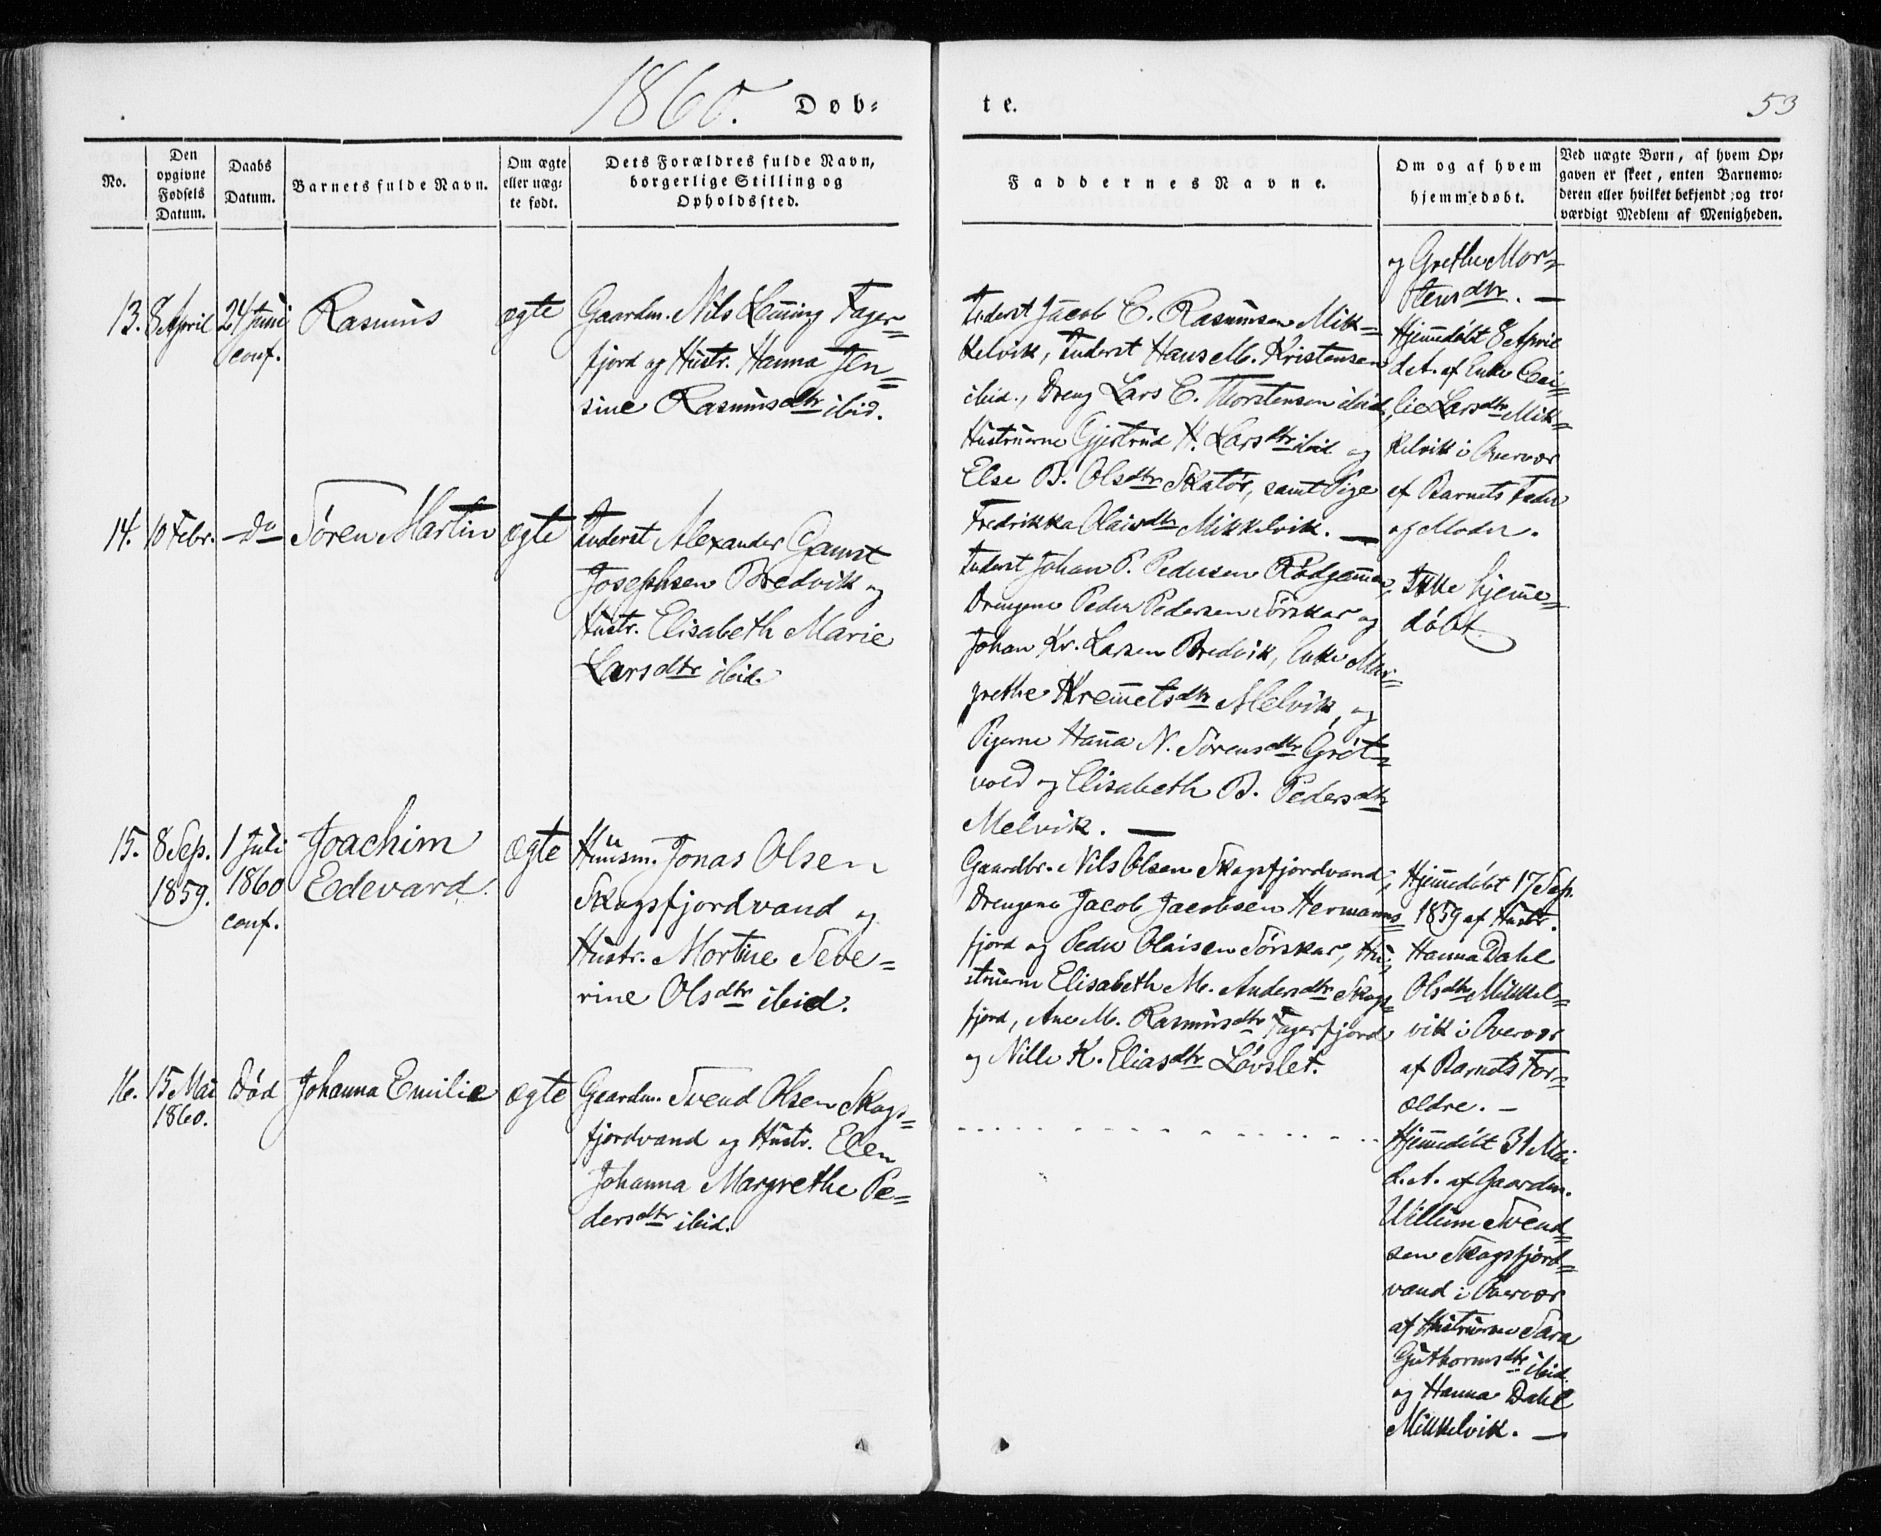 1860.
Døb-
te.
53
No.
Den
opgivne
Fødsels
Datum.
Daabs
Datum.
Barnets fulde Navn.
Om ægte
eller uæg-
te født.
Dets Forældres fulde Navn,
borgerlige Stilling og
Opholdssted.
Faddernes Navne.
Om og af hvem
hjemmedøbt.
Ved uægte Børn, af hvem Op-
gaven er skeet, enten Barnemo-
deren eller hvilket bekjendt og tro-
værdigt Medlem af Menigheden.
og Grethe Mor-
tensdtr. —
13.
8 April
24 Juni
conf.
Rasmus
ægte
Gaardm. Nils Lenning Fager-
fjord og Hustr. Hanna Jen-
sine Rasmusdtr ibid.
Inderst Jacob C. Rasmusen Mik-
kelvik, Inderst Hans M. Kristensen
ibid., Dreng Lars C. Thorstensen ibid.,
Hustruerne Gjertrud H. Larsdtr ibid og
Else B. Olsdtr Skatør, samt Pige
Fredrikka Olaisdtr Mikkelvik. —
Hjemedøbt 8 April
d.A. af Enke Ceci-
lie Larsdtr Mik-
kelvik i Overvær
af Barnets Fader
og Moder.
14.
10 Febr.
Do
Søren Martin
ægte
Inderst Alexander Gamst
Josephsen Bredvik og
Hustr. Elisabeth Marie
Larsdtr ibid.
Inderst Johan P. Pedersen Rødgamen,
Drengene Peder Pedersen Sørskar og
Johan Kr. Larsen Bredvik, Enke Mar-
grethe Kremetsdtr Melvik, og
Pigerne Hana N. Sørensdtr Grøt-
vold og Elisabeth B. Pedersdtr
Melvik. —
Ikke hjeme-
døbt.
15.
8 Sep.
1859.
1 Juli
1860
conf.
Joachim
Edevard.
ægte
Huusm. Jonas Olsen
Skogsfjordvand og
Hustr. Mortine Seve-
rine Olsdtr ibid.
Gaardbr. Nils Olsen Skogsfjordvand,
Drengene Jacob Jacobsen Hermanns-
fjord og Peder Olaisen Sørskar, Hu-
struerne Elisabeth M. Andersdtr Skogs-
fjord, Ane M. Rasmusdtr Fagerfjord
og Nille K. Eliasdtr Løvslet.
Hjemedøbt 17 Sep.
1859 af Hustr.
Hanna Dahl
Olsdtr Mikkel-
vik i Overvær
af Barnets For-
ældre. —
16.
15 Mai
1860.
Død
Johanna Emilie
ægte
Gaardm. Svend Olsen Skogs-
fjordvand og Hustr. Elen
Johanna Margrethe Pe-
dersdtr ibid.
Hjemedøbt 31 Mai
d.A. af Gaardm.
Willum Svend-
sen Skogsfjord-
vand i Overvær
af Hustruerne Sara
Guthormsdtr ibid.
og Hanna Dahl
Mikkelvik. —